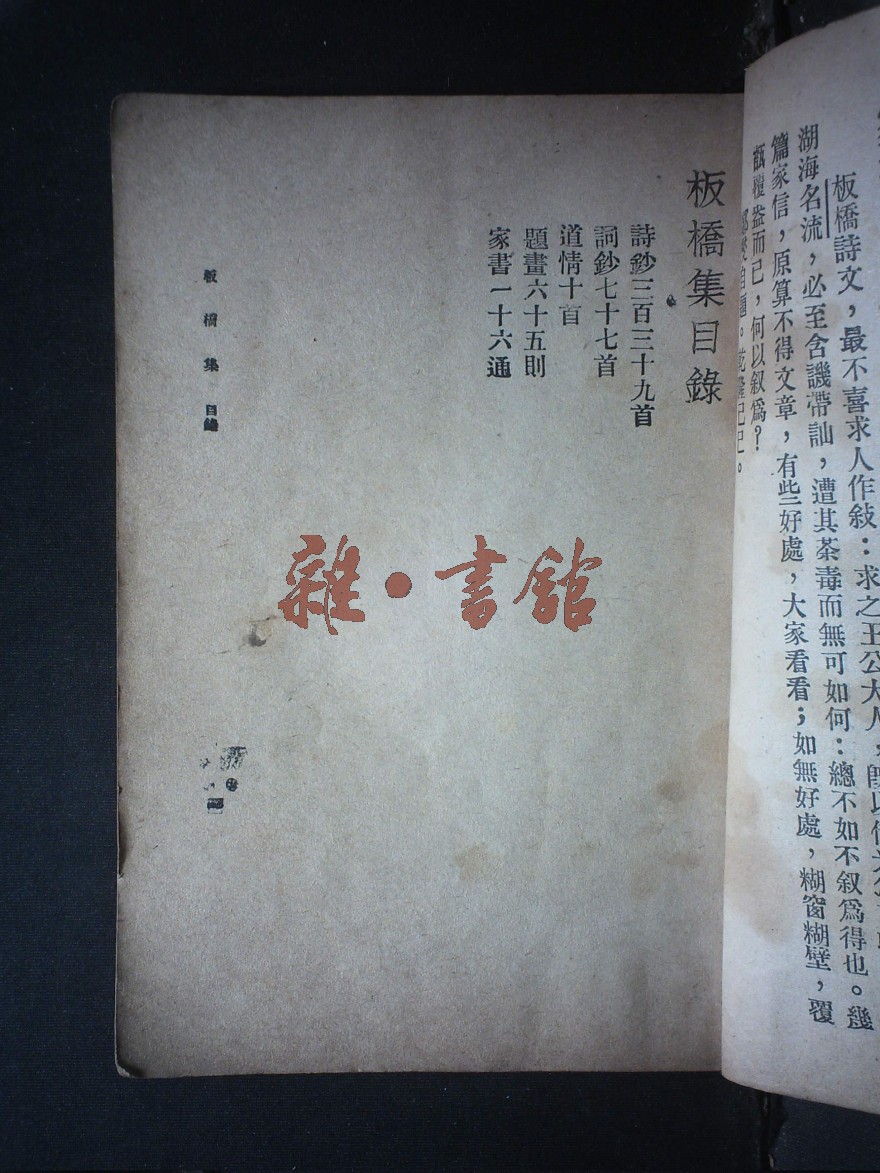 板橋詩文，最不喜求人作敍：求之王公大人，
湖海名流，必至含譏帶訕，遭其荼毒而無可如何：總不如不叙爲得也。幾
篇家信，原算不得文章，有些好處，大家看看；如無好處，糊窗糊壁，覆
瓿覆盎而已，何以叙爲？
自題。乾隆己巳。
板橋集目錄
詩鈔三百三十九首
詞鈔七十七首
道情十首
題畫六十五則
家書一十六通
板橋集 目錄
雜·書館